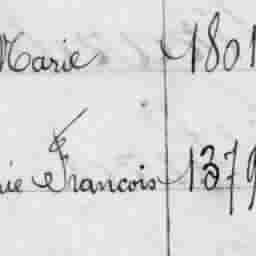 Marie 1801
ie François 1379